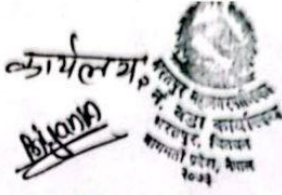 कार्यालय,
भरतपुर महानगरपालिका
नं. वडा कार्यालय
भरतपुर, चितवन
बागमती प्रदेश, नेपाल
२०७३